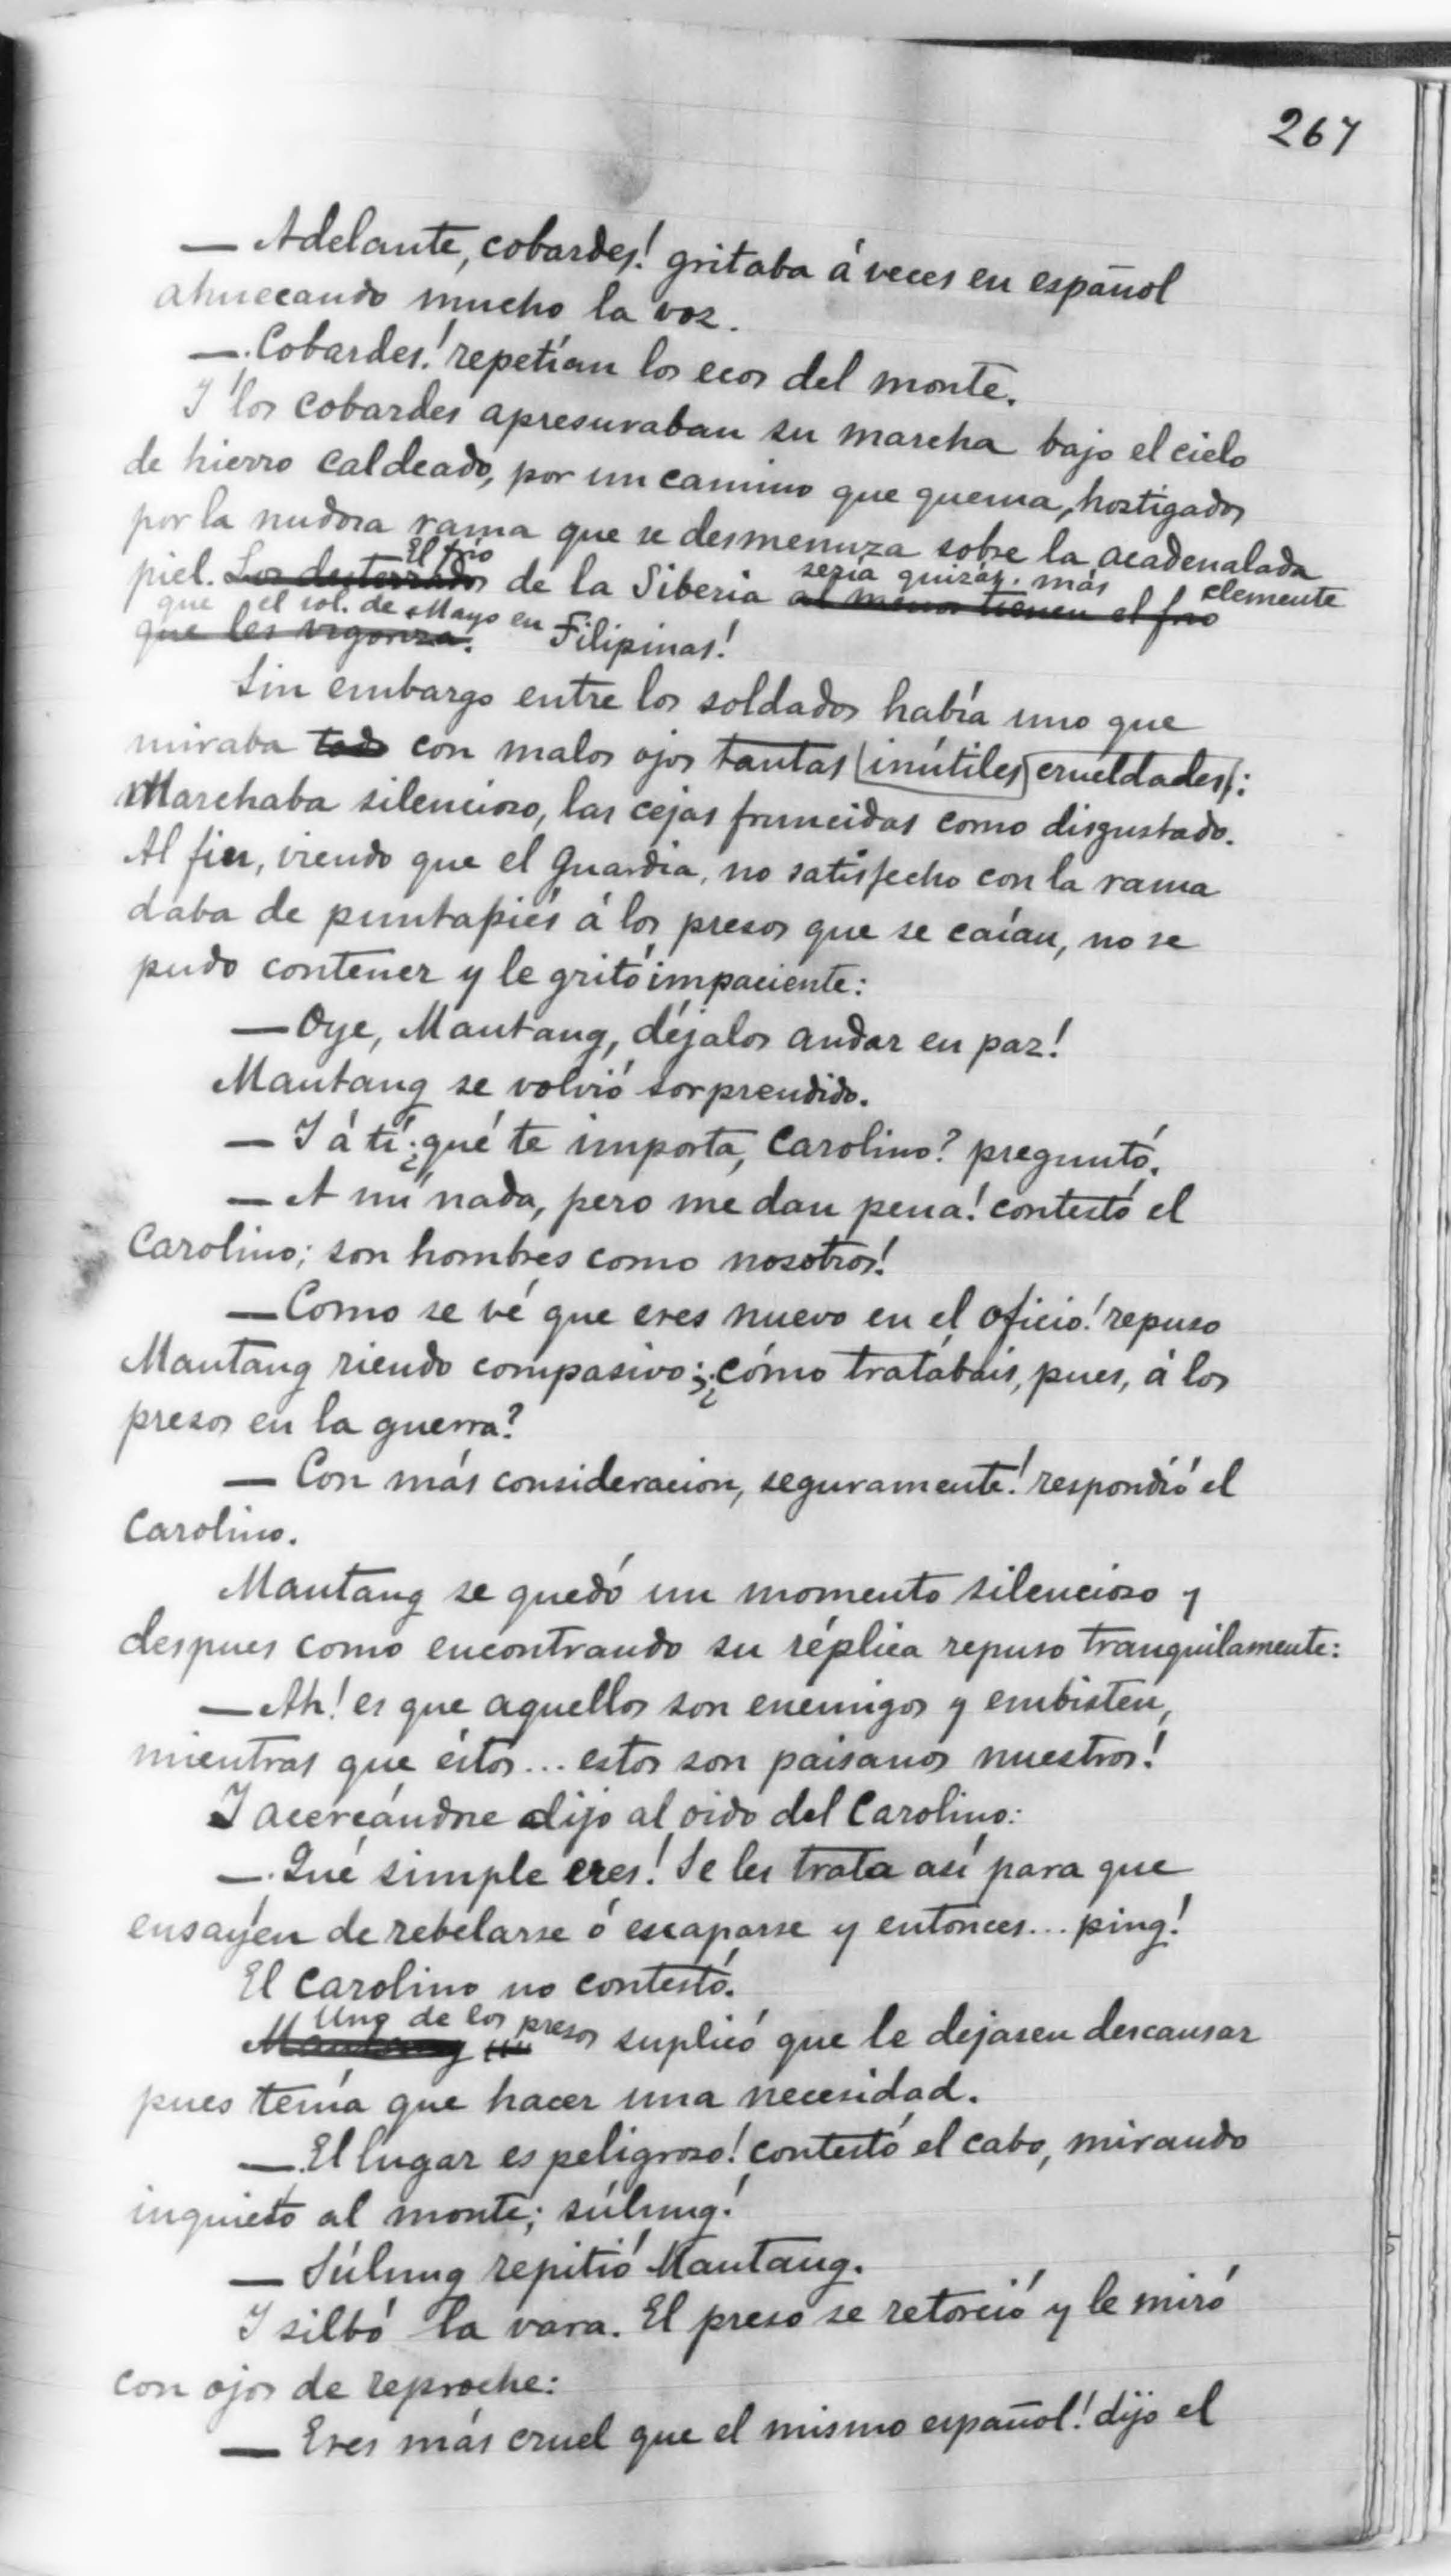 267
— Adelante, cobardes! gritaba á veces en español
ahuecando mucho la voz.
— ¡Cobardes! repetían los ecos del monte.
Y los cobardes apresuraban su marcha bajo el cielo
de hierro caldeado, por un camino que quema, hostigados
por la nudosa rama que se desmenuza sobre la acadenalada
El frio sería quizás más clemente
piel. Los desterrados de la Siberia al menos tienen el frio
que el sol de Mayo en
que les vigoriza. Filipinas!
Sin embargo entre los soldados había uno que
miraba todo con malos ojos tantas inútiles crueldades:
Marchaba silencioso, las cejas fruncidas como disgustado.
Al fin, viendo que el Guardia, no satisfecho con la rama
daba de puntapiés á los presos que se caían, no se
pudo contener y le gritó impaciente:
— Oye, Mautang, déjalos andar en paz!
Mautang se volvió sorprendido.
— Y á tí ¿qué te importa, Carolino? preguntó.
— A mí nada, pero me dan pena! contestó el
Carolino; son hombres como nosotros!
— Como se vé que eres nuevo en el oficio! repuso
Mautang riendo compasivo; ¿cómo tratábais, pues, á los
presos en la guerra?
— Con más consideracion, seguramente! respondió el
Carolino.
Mautang se quedó un momento silencioso y
despues como encontrando su réplica repuso tranquilamente:
— Ah! es que aquellos son enemigos y embisten,
mientras que éstos... estos son paisanos nuestros!
Y acercándose dijo al oido del Carolino:
— ¡Qué simple eres! Se les trata así para que
ensayen de rebelarse ó escaparse y entonces... ping!
El Carolino no contestó.
Uno de los presos
Mautang suplicó que le dejasen descansar
pues tenía que hacer una necesidad.
— El lugar es peligroso! contestó el cabo, mirando
inquieto al monte; súlung!
— Súlung repitió Mautang.
Y silbó la vara. El preso se retorció y le miró
con ojos de reproche:
— Eres más cruel que el mismo español! dijo el